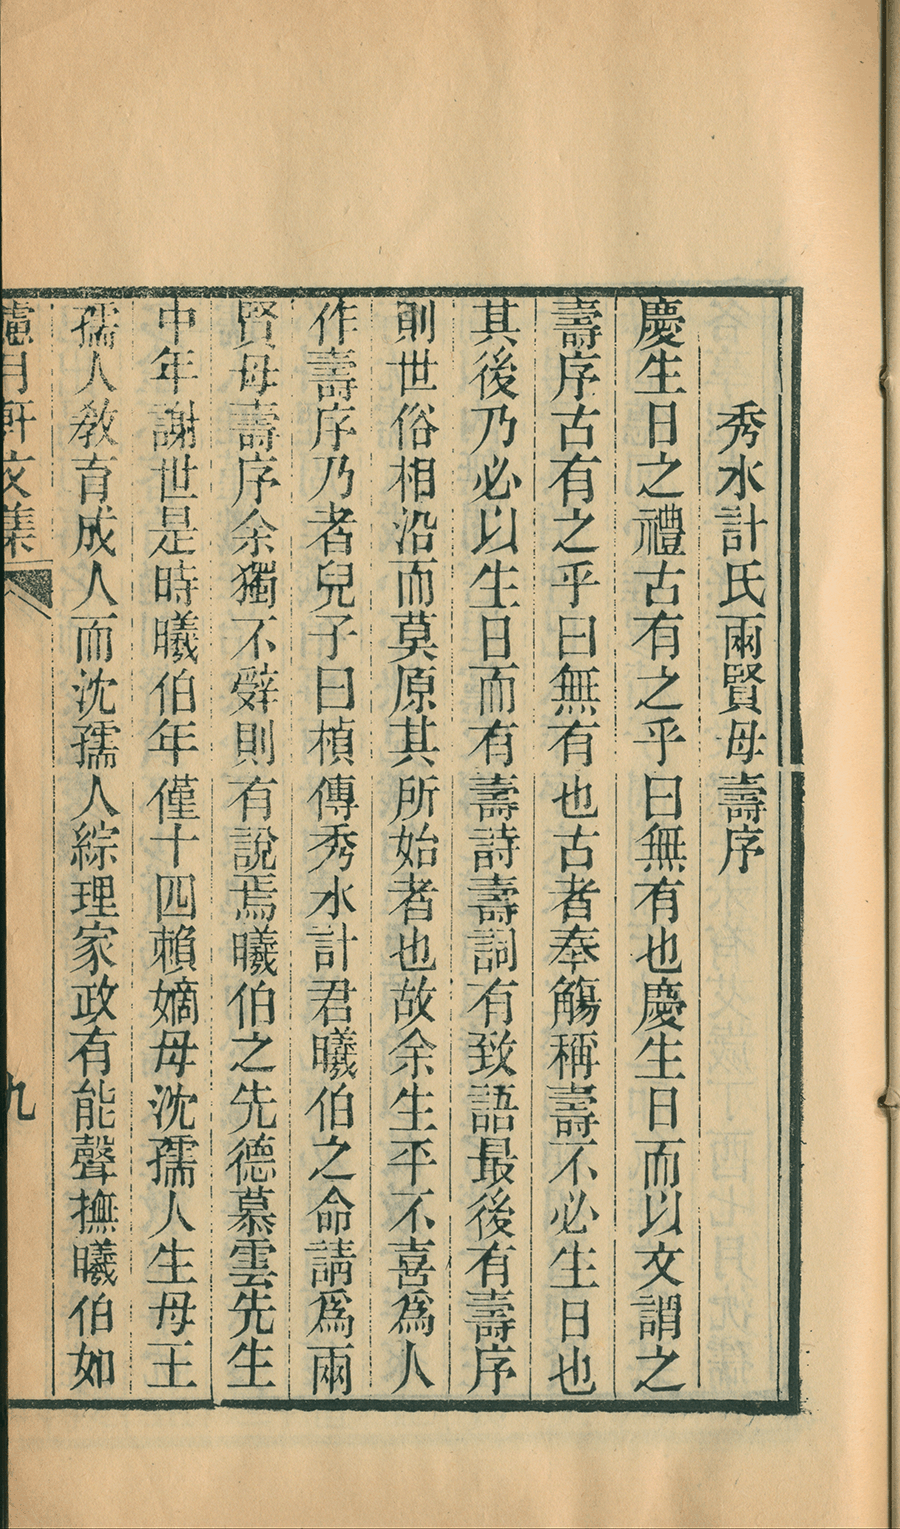 秀水計氏兩賢母壽序
慶生日之禮古有之乎曰無有也慶生日而以文謂之
壽序古有之乎曰無有也古者奉觴稱壽不必生日也
其後乃必以生日而有壽詩壽詞有致語最後有壽序
則世俗相沿而莫原其所始者也故余生平不喜爲人
作壽序乃者兒子曰楨傳秀水計君曦伯之命請爲兩
賢母壽序余獨不辭則有說焉曦伯之先德慕雲先生
中年謝世是時曦伯年僅十四賴嫡母沈孺人生母王
孺人教育成人而沈孺人綜理家政有能聲撫曦伯如
月軒文集
九